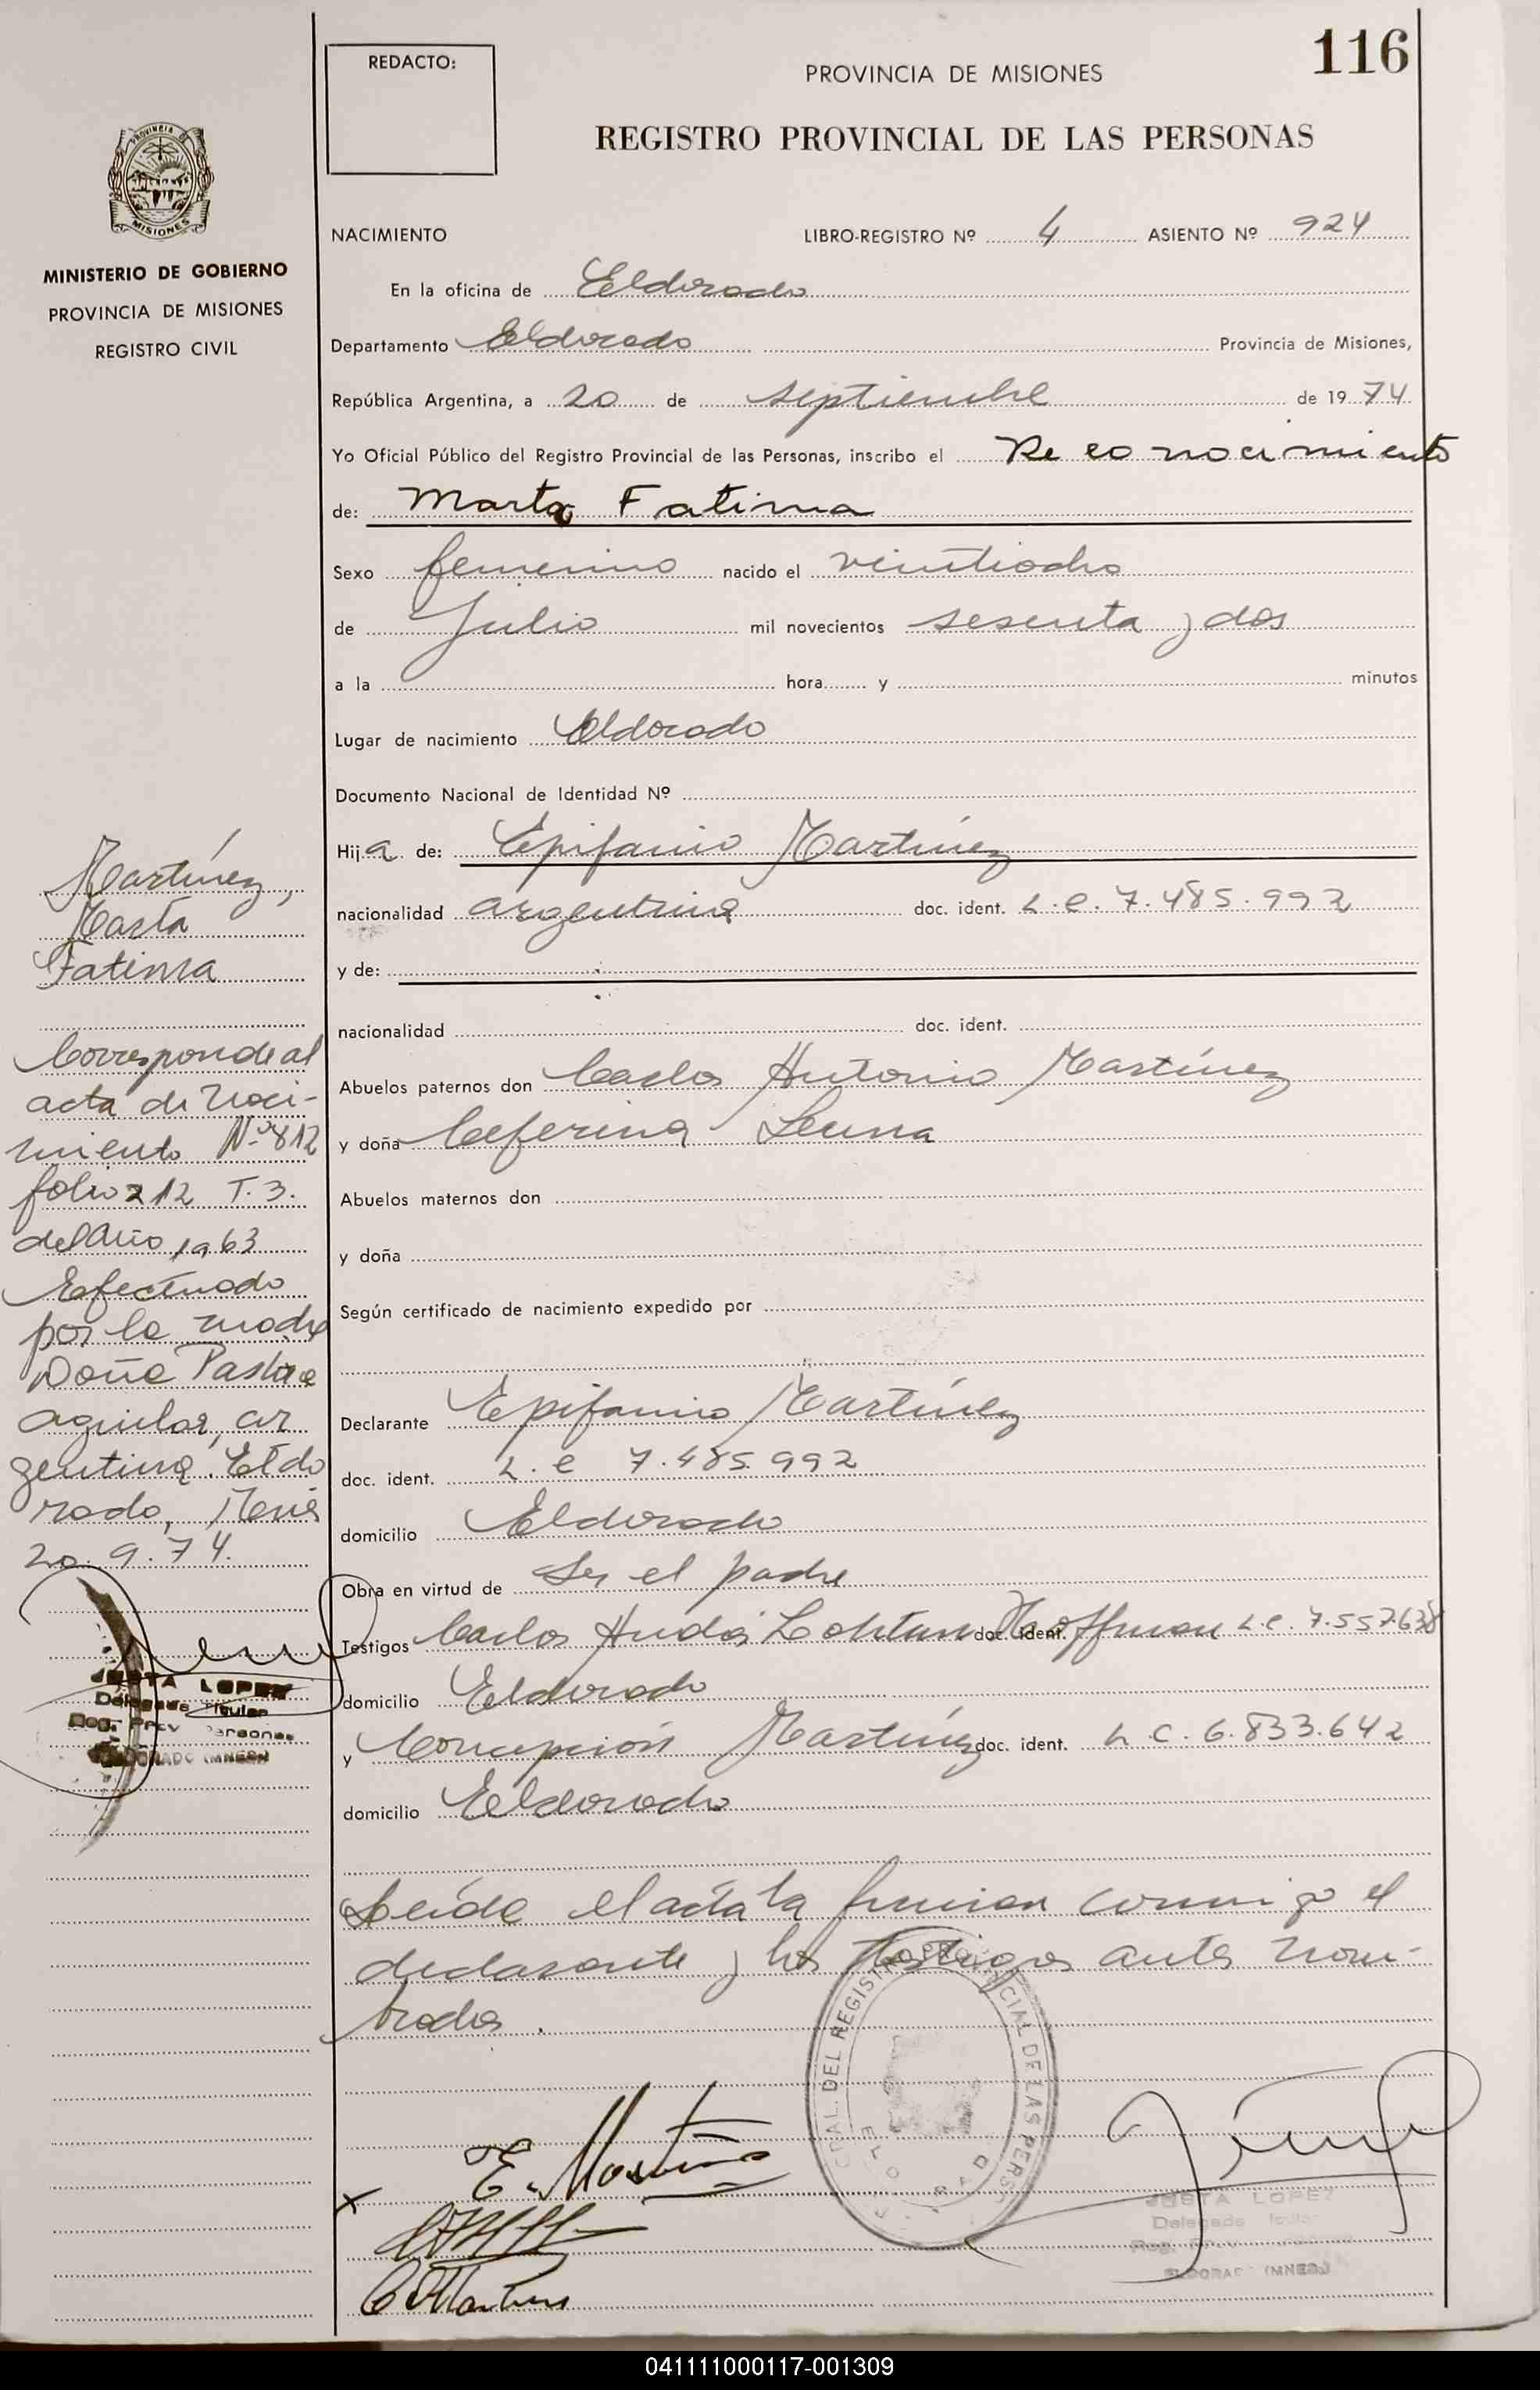 116
REDACTO:
PROVINCIA DE MISIONES
REGISTRO PROVINCIAL DE LAS PERSONAS
NACIMIENTO LIBRO-REGISTRO Nº 4 ASIENTO Nº 924
En la oficina de Eldorado
Departamento Eldorado Provincia de Misiones,
República Argentina, a 20 de septiembre de 1974
Yo Oficial Público del Registro Provincial de las Personas, inscribo el Reconocimiento
de: Marta Fatima
Sexo femenino nacido el veintiocho
de Julio mil novecientos sesenta y dos
a la hora y minutos
Lugar de nacimiento Eldorado
Documento Nacional de Identidad Nº
Hija de: Epifanio Martínez
nacionalidad argentina doc. ident. L.e. 7.485.992
y de:
nacionalidad doc. ident.
Abuelos paternos don Carlos Antonio Martínez
y doña Ceferina
Abuelos maternos don
y doña
Según certificado de nacimiento expedido por
Declarante Epifanio Martínez
doc. ident. L.e 7.485.992
domicilio Eldorado
Obra en virtud de Ser el padre
Testigos Carlos doc. ident. Hoffman L.e. 7.557.638
domicilio Eldorado
y Concepción Martínez doc. ident. L.C. 6.833.642
domicilio Eldorado
Leída el acta la firman conmigo el
declarante y los testigos antes nom-
brados.
E. Martínez
JUSTA LOPEZ
Delegada Titular
ELDORADO (MNES)
PROVINCIA DE
MISIONES
MINISTERIO DE GOBIERNO
PROVINCIA DE MISIONES
REGISTRO CIVIL
Martínez,
Marta
Fatima
Corresponde al
acta de naci-
miento Nº 812
folio 212 T.3.
del año 1963
Efectuado
por la madre
Doña
aguilar, ar
gentina. Eldo
rado, Mnes
20.9.74.
JUSTA LOPEZ
Delegada Titular
Reg. Prov Personas
ELDORADO (MNES)
041111000117-001309